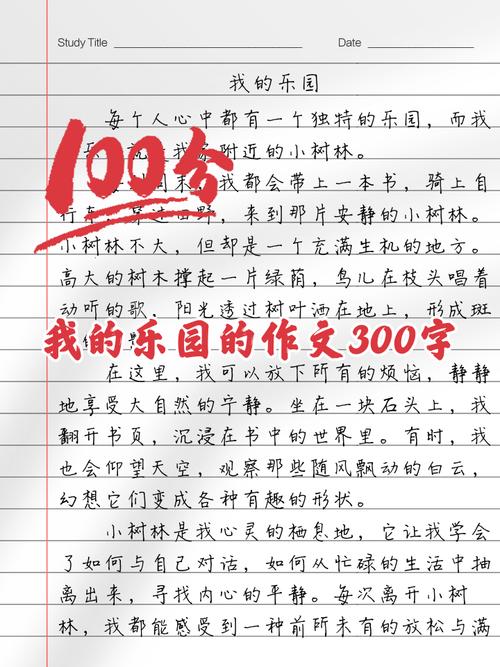 Study Title Date
我的乐园
每个人心中都有一个独特的乐园，而我
附近的小树林。
100分
我都会带上一本书，骑上自
来到那片安静的小树林。
小树林不大，但却是一个充满生机的地方。
高大的树木撑起一片绿荫，鸟儿在枝头唱着
动听的歌，阳光透过树叶洒在地上，形成斑
我的乐园的作文300字
在这里，我可以放下所有的烦恼，静静
地享受大自然的宁静。坐在一块石头上，我
翻开书页，沉浸在书中的世界里。有时，我
也会仰望天空，观察那些随风飘动的白云，
幻想它们变成各种有趣的形状。
小树林是我心灵的栖息地，它让我学会
了如何与自己对话，如何从忙碌的生活中抽
离出来，寻找内心的平静。每次离开小树
林，我都能感受到一种前所未有的放松与满